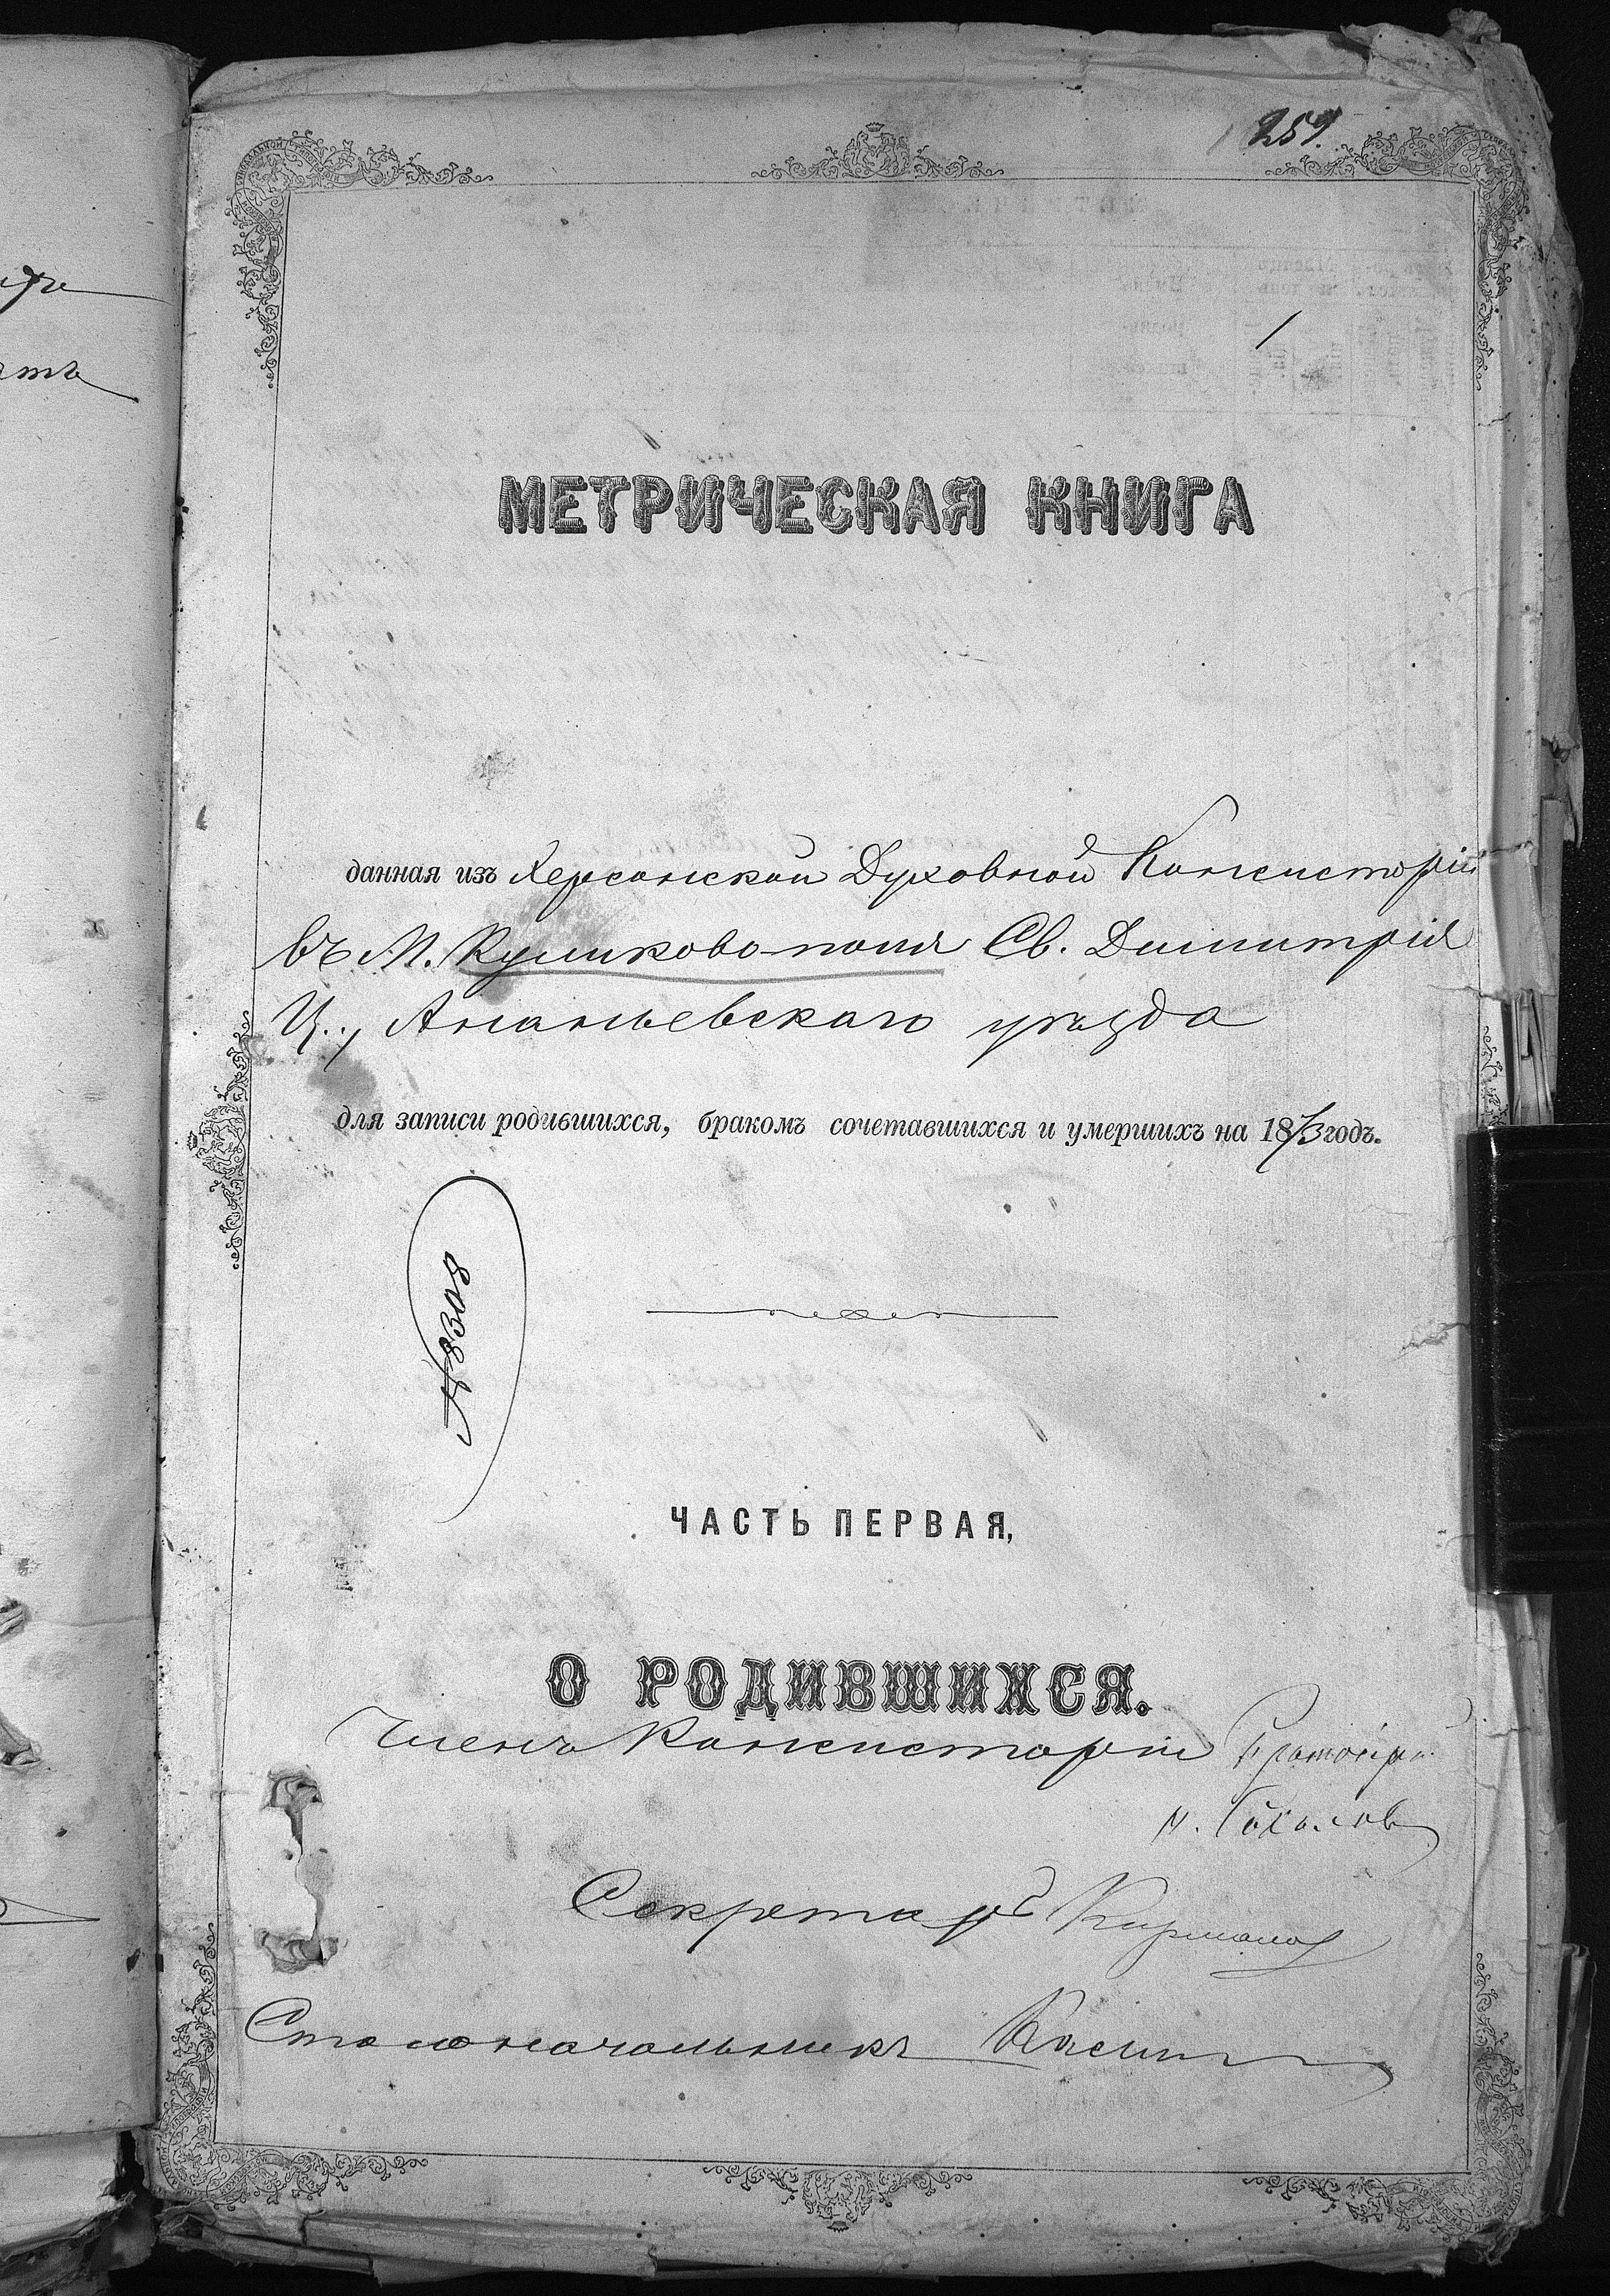 259.
1
МЕТРИЧЕСКАЯ КНИГА
данная изъ Херсонской Духовной Консисторіи
въ М. Куликово-поля Св. Димитрія
Ц., Ананьевскаго уѣзда
для записи родившихся, бракомъ сочетавшихся и умершихъ на 1873 годъ.
№ 8308
ЧАСТЬ ПЕРВАЯ,
О РОДИВШИХСЯ.
Членъ Консисторіи
Секретарь
Столоначальникъ